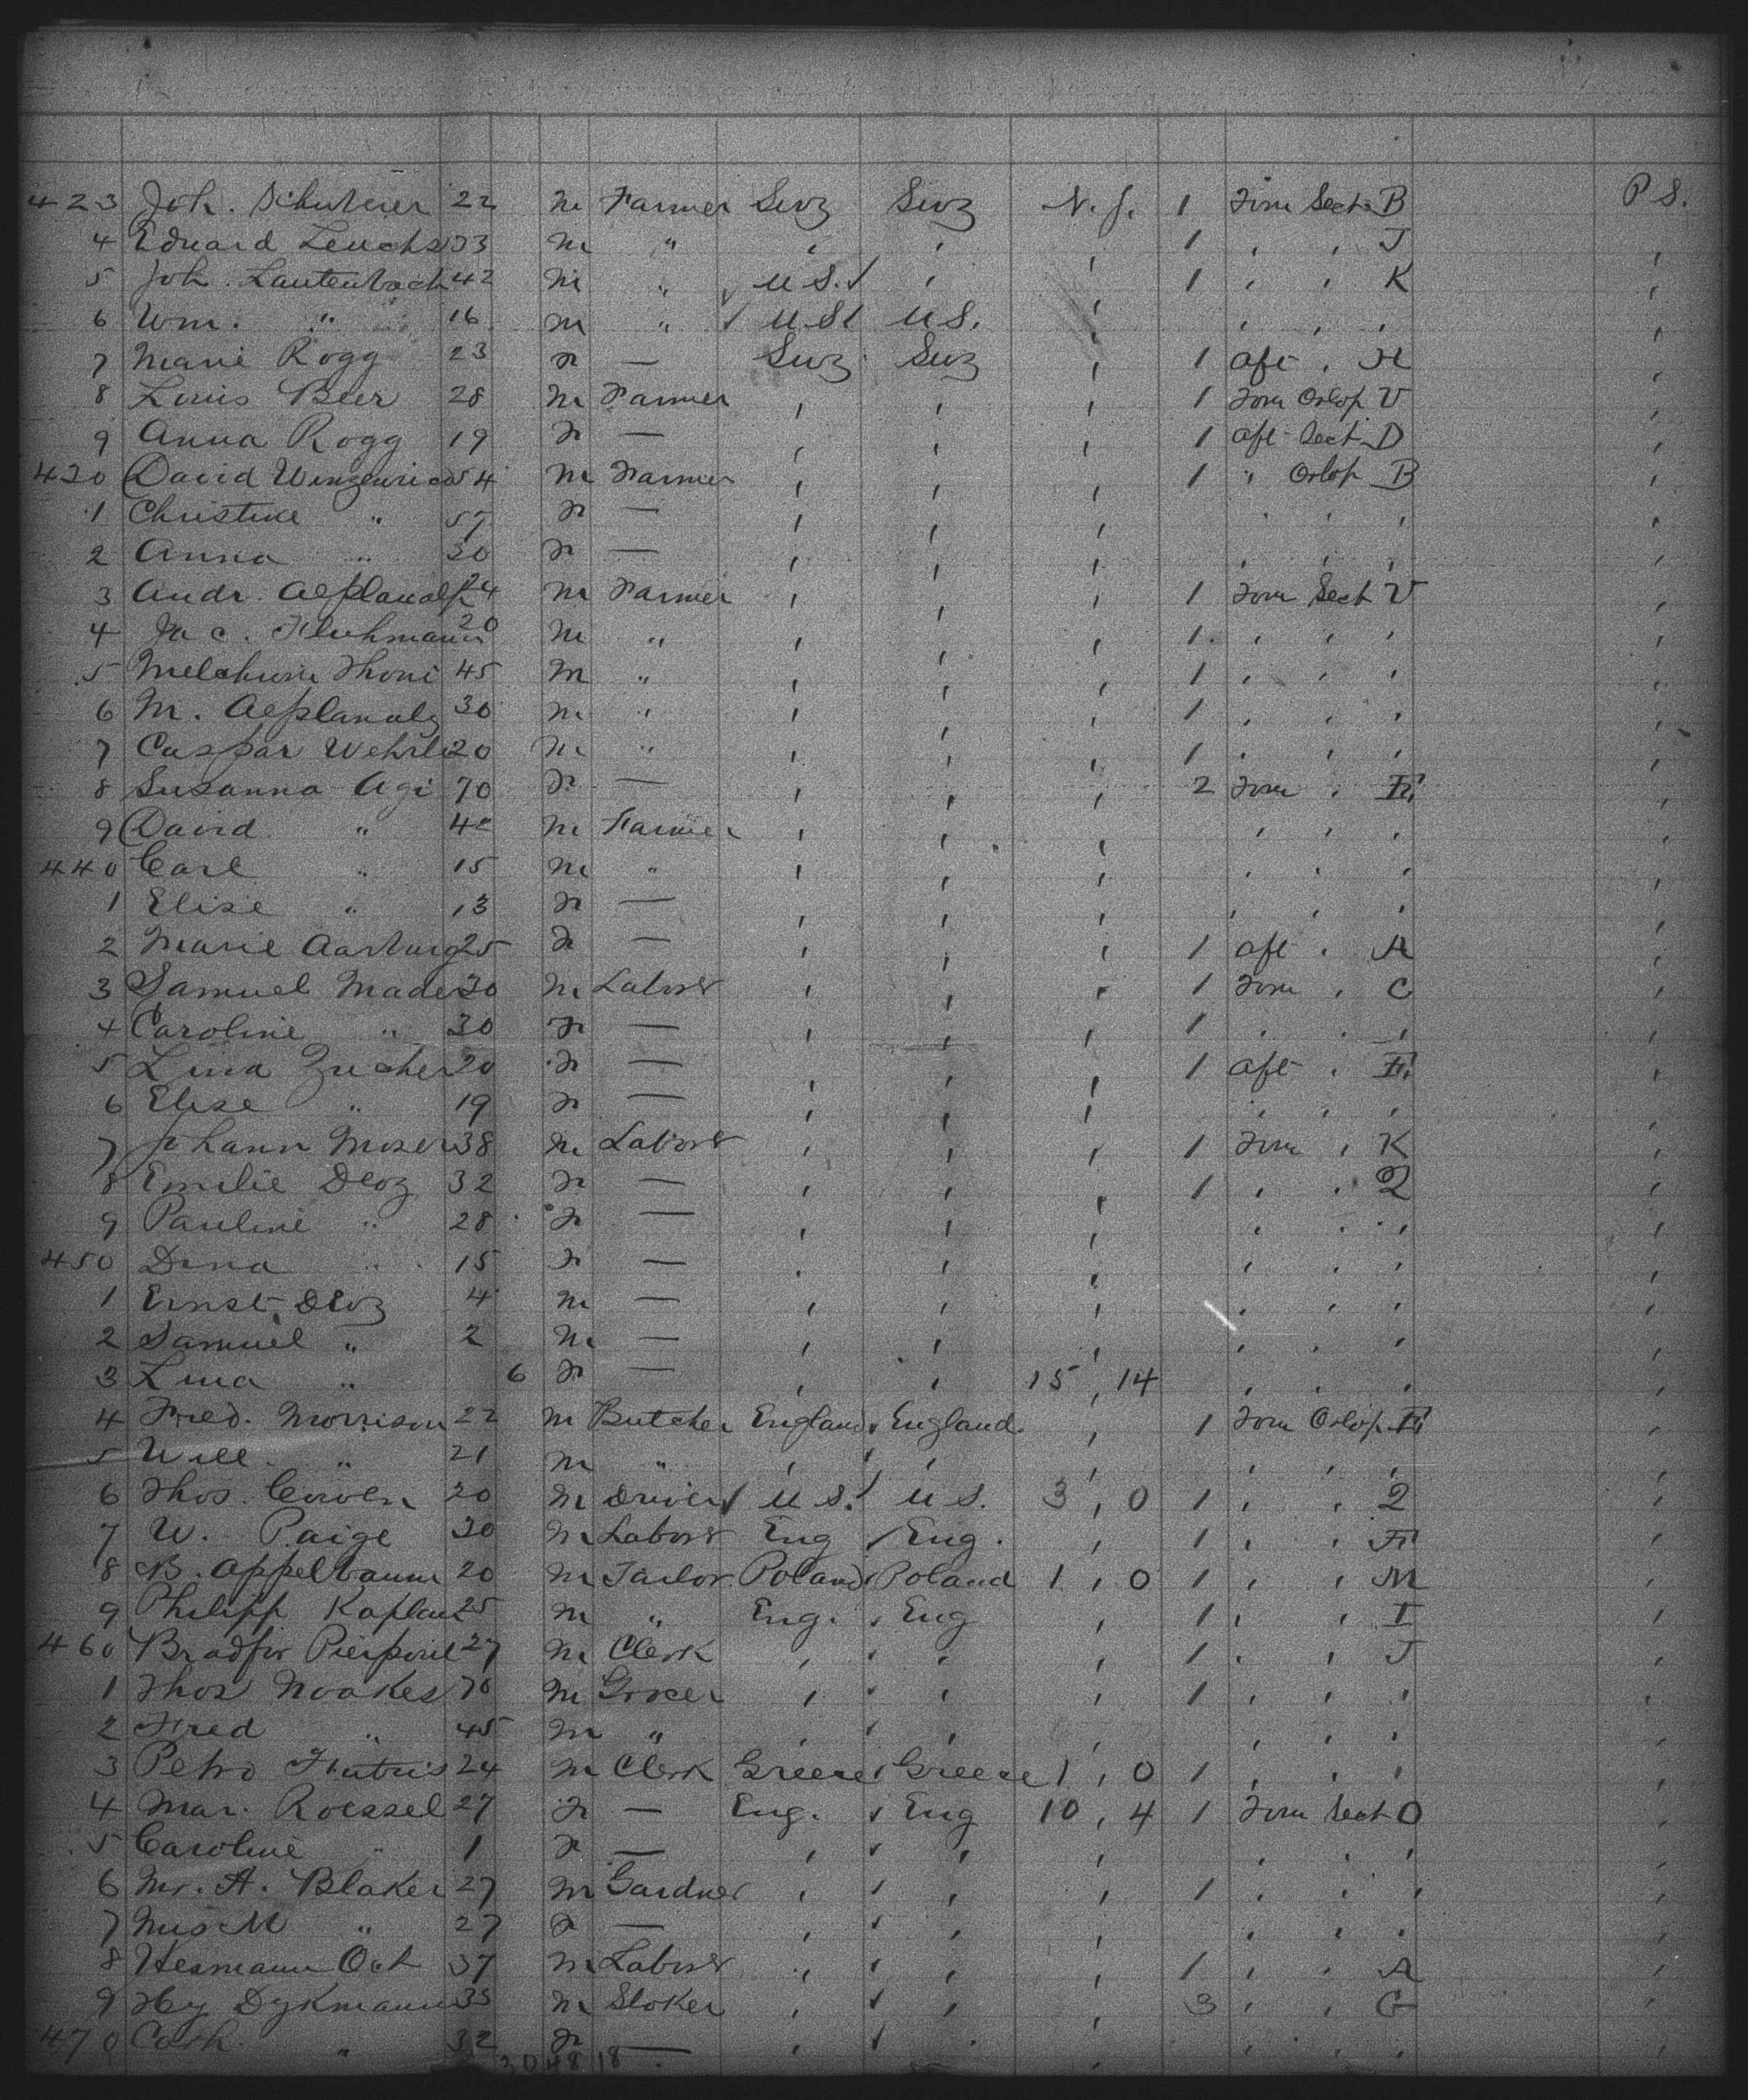 423 Joh. 22 m Farmer Swz Swz N. J. 1 Forw Sect. B P S.
4 Eduard Leuchs 33 m " ' ' ' 1 ' ' J '
5 Joh. Lautenbach 42 m " U S. ' ' 1 ' ' K '
6 Wm. " 16 m " U S U S. ' ' ' ' '
7 Marie Rogg 23 F — Swz Swz ' 1 aft ' H '
8 Louis Beer 28 m Farmer ' ' ' 1 Forw Orlop V '
9 Anna Rogg 19 F — ' ' ' 1 aft Sect D '
430 David 54 m Farmer ' ' ' 1 " Orlop B '
1 Christine " 57 F — ' ' ' ' ' ' '
2 Anna " 30 F — ' ' ' ' ' ' '
3 Andr. Aeplanalp 24 m Farmer ' ' ' 1 Forw Sect V '
4 Jac. Fluhmann 20 m " ' ' ' 1 ' ' ' '
5 Thoni 45 m " ' ' ' 1 ' ' ' '
6 M. 30 m " ' ' ' 1 ' ' ' '
7 Caspar Wehrli 20 m " ' ' ' 1 ' ' ' '
8 Susanna Agi 70 F — ' ' ' 2 Forw ' F '
9 David " 42 m Farmer ' ' ' ' ' ' '
440 Carl " 15 m " ' ' ' ' ' ' '
1 Elise " 13 F — ' ' ' ' ' ' '
2 Marie Aarburg 25 F — ' ' ' 1 aft ' A '
3 Samuel Mader 30 m Laborer ' ' ' 1 Forw ' C '
4 Caroline " 30 F — ' ' ' 1 ' ' ' '
5 Lina Zucher 20 F — ' ' ' 1 aft ' F '
6 Elise " 19 F — ' ' ' ' ' ' '
7 Johann Moser 38 m Laborer ' ' ' 1 Forw ' K '
8 Emilie Droz 32 F — ' ' ' 1 ' ' Q '
9 Pauline " 28 F — ' ' ' ' ' ' '
450 Dina " 15 F — ' ' ' ' ' ' '
1 Ernst Droz 4 m — ' ' ' ' ' ' '
2 Samuel " 2 m — ' ' ' ' ' ' '
3 Lina " 6 F — ' ' 15 , 14 ' ' ' '
4 Fred. Morrison 22 m Butcher England England ' 1 Forw Orlop F '
5 Will " 21 m " ' ' ' ' ' ' '
6 Thos. 20 m Driver U S. U S. 3 , 0 1 ' ' Q '
7 W. Paige 30 m Laborer Eng Eng. ' 1 ' ' F '
8 B. Appelbaum 20 m Tailor Poland Poland 1 , 0 1 ' ' M '
9 Philipp Kaplan 25 m " Eng. Eng ' 1 ' ' I '
460 27 m Clerk ' ' ' 1 ' ' J '
1 Thos Noakes 70 m Grocer ' ' ' 1 ' ' ' '
2 Fred " 45 m " ' ' ' ' ' ' '
3 Petro 24 m Clerk Greece Greece 1 , 0 1 ' ' ' '
4 Mar. Roessel 27 F — Eng. Eng 10 , 4 1 Forw Sect O '
5 Caroline " 1 F — ' ' ' ' ' ' '
6 Mr. A. Blaker 27 m Gardner ' ' ' 1 ' ' ' '
7 Mrs M " 27 F — ' ' ' ' ' ' '
8 Hermann Ock 37 m Laborer ' ' ' 1 ' ' A '
9 Hy Dykmann 35 m Stoker ' ' ' 3 ' ' G '
470 Cath. " 32 F — ' ' ' ' ' ' '
30 48 18